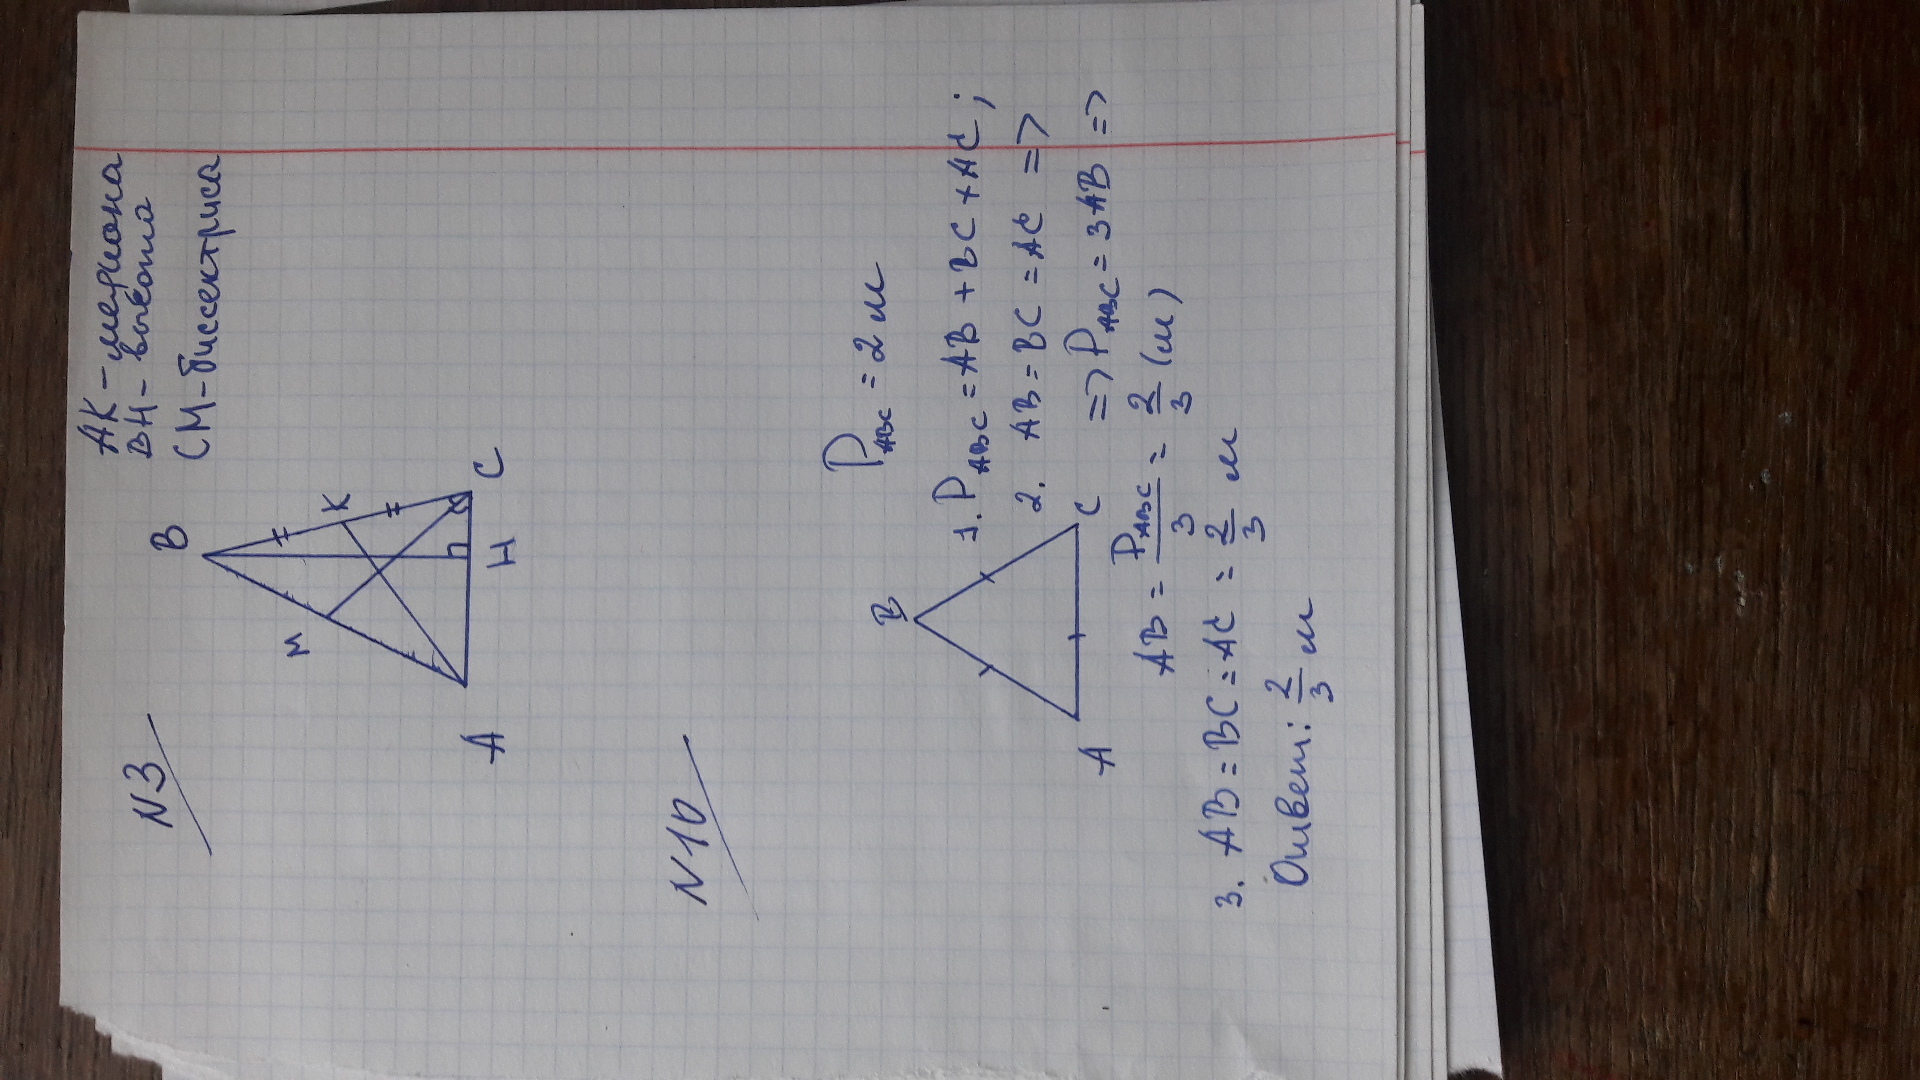 N3
AK - медиана
BH - высота
CM - биссектриса
B
M
K
A
H
C
N10
P ABC = 2 м
B
A
C
1. P ABC = AB + BC + AC;
2. AB = BC = AC =>
=> P ABC = 3AB =>
AB = P ABC / 3 = 2/3 (м)
3. AB = BC = AC = 2/3 м
Ответ: 2/3 м